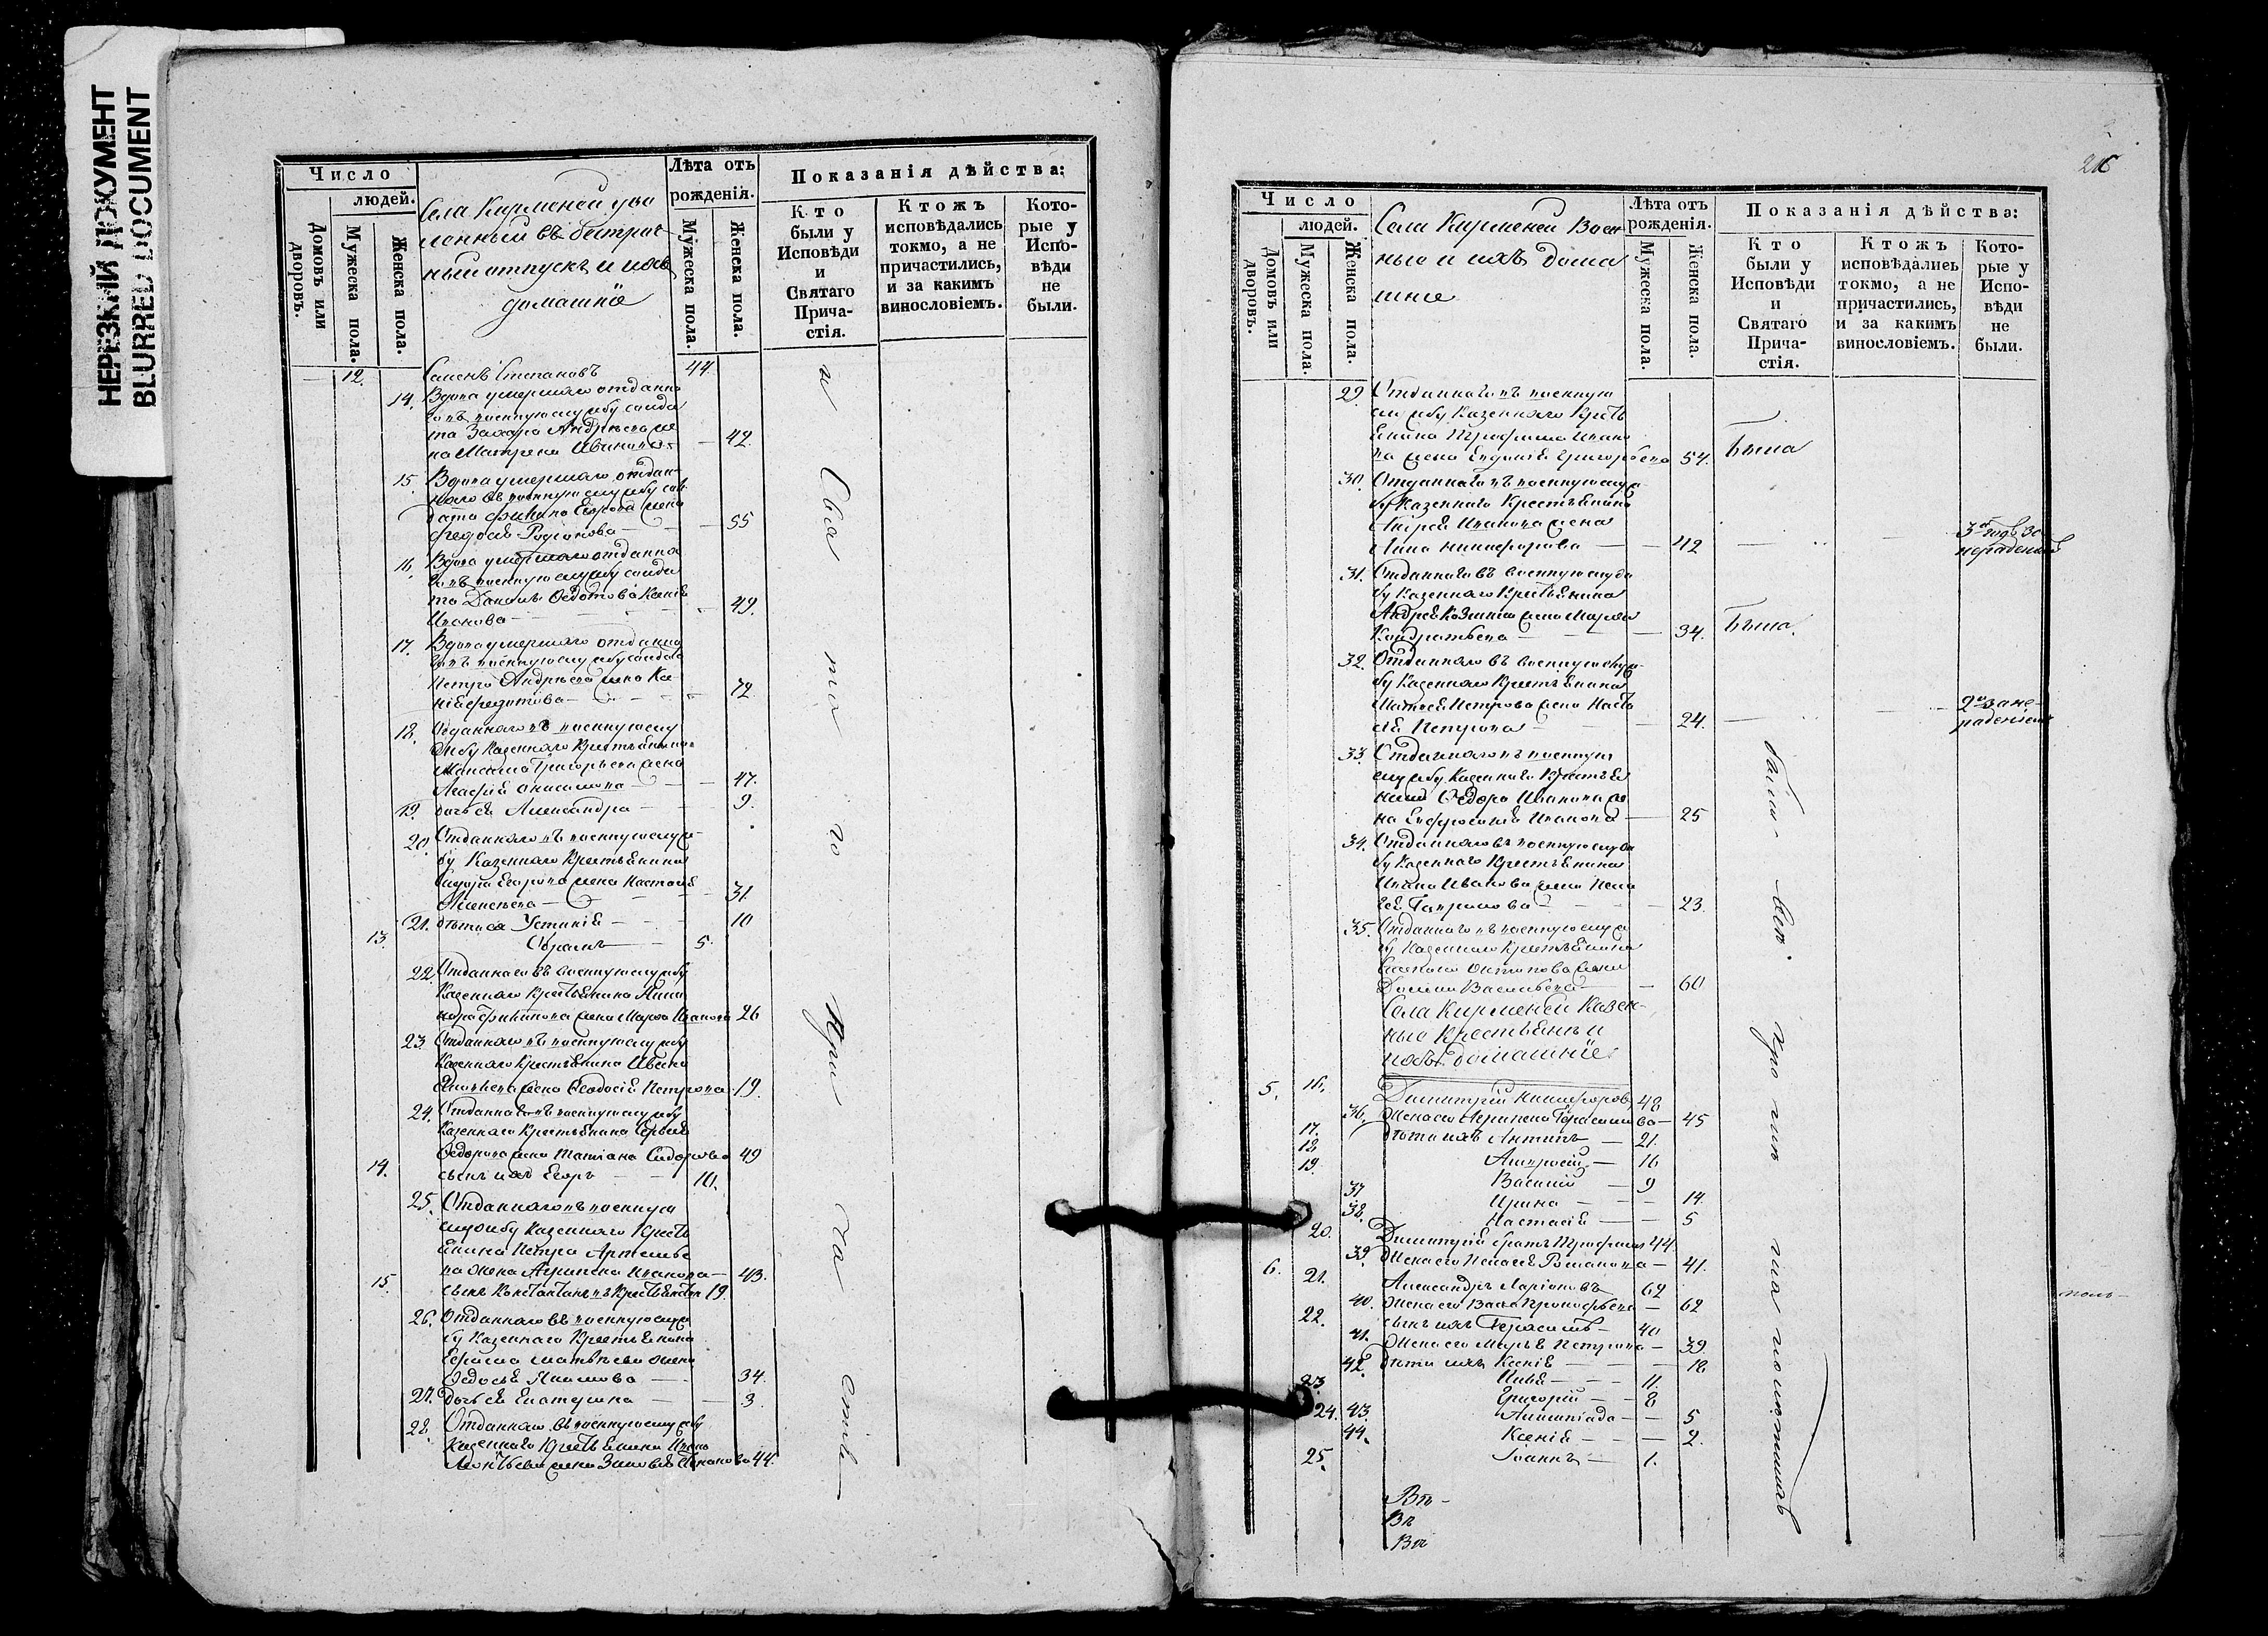 НЕРЕЗКИЙ ДОКУМЕНТ
BLURRED DOCUMENT
Число
людей.
Домовъ или дворовъ.
Мужеска пола.
Женска пола.
Села Кирменей уво
ленный въ безсроч
ный отпускъ и ихъ
домашніе
Лѣта отъ
рожденія.
Мужеска пола.
Женска пола.
Показанія дѣйства:
Кто
были у
Исповѣди
и
Святаго
Прича-
стія.
Ктожъ
исповѣдались
токмо, а не
причастились,
и за какимъ
винословіемъ.
Кото-
рые у
Испо-
вѣди
не
были.
— 12. Семенъ Степановъ 44.
14. Вдова умершаго отданна
го въ военную службу солда
та Захара Андреева же
на Матрена Иванова — 42.
15. Вдова умершаго отдан-
наго въ военную службу сол
дата Филипа Егорова жена
Федосья Родіонова — 55
16. Вдова умершаго отданна
го въ военную службу солда
та Данилы Федотова Ксенія
Иванова — 49.
17. Вдова умершаго отданна
го въ военную службу солдата
Петра Андреева жена Ксе
нія — 72
18. Отданнаго въ военную слу
жбу казеннаго крестьянина
Максима Григорьева жена
Агафія Анисимова — 47.
19. дочь ея Александра — 9.
20. Отданнаго въ военную служ-
бу Казеннаго Крестьянина
Егорова жена Настасья
Алексѣева — 31.
21. дѣти ея Устинія — 10
13. Абрамъ — 5.
22. Отданнаго въ военную службу
Казеннаго Крестьянина Ники
фора Филипова жена Марѳа Иванова 26
23. Отданнаго въ военную службу
Казеннаго Крестьянина Ивана
жена Ѳеодосія Петрова 19.
24. Отданнаго въ военную службу
Казеннаго Крестьянина Сергѣя
Ѳедорова жена Татіана Сидорова 49
14. сынъ ихъ Егоръ — 10.
25. Отданнаго въ военную
службу Казеннаго Кресть
янина Петра Артемье
ва жена Агрипена Иванова — 43.
15. сынъ Константинъ 19.
26. Отданнаго въ военную служ
бу Казеннаго Крестьянина
Ефима Матвѣева жена
Ѳедосья Якимова — 34.
27. дочь ея Екатерина — 3.
28. Отданнаго въ военную службу
Казеннаго Крестьянина Ивана
Леонтьева жена Зиновья 44.
и Свя та го При ча стія
Число
людей.
Домовъ или дворовъ.
Мужеска пола.
Женска пола.
Села Кирменей Воен
ные и ихъ дома
шніе
Лѣта отъ
рожденія.
Мужеска пола.
Женска пола.
Показанія дѣйства:
Кто
были у
Исповѣди
и
Святаго
Прича-
стія.
Ктожъ
исповѣдались
токмо, а не
причастились,
и за какимъ
винословіемъ.
Кото-
рые у
Испо-
вѣди
не
были.
29. Отданнаго въ военную
службу Казеннаго Кресть
янина Трофима Ивано
ва жена Евдокія Григорьева 54. Была
30. Отданнаго въ военную служ
бу Казеннаго Крестьянина
Андрея Иванова жена
Анна Никифорова — 42 — 3й годъ за
нерадѣніемъ
31. Отданнаго въ военную служ
бу Казеннаго Крестьянина
Андрея Козмина жена Марья
Кондратьева — 34. Была.
32. Отданнаго въ военную служ
бу Казеннаго Крестьянина
Матвея Петрова жена Наста
сія Петрова — 24. — 2й за не-
радѣніемъ
33. Отданнаго въ военную
службу Казеннаго Крестья
нина Ѳедора Иванова же
на Евфросинія Иванова — 25
34. Отданнаго въ военную служ
бу Казеннаго Крестьянина
Ивана Иванова жена Пела
гея Гаврилова — 23.
35. Отданнаго въ военную служ
бу Казеннаго Крестьянина
Антипова жена
Домна Васильева — 60
Села Кирменей Казен-
ные Крестьяны и
ихъ домашніе
5. 16. Димитрій Никифоровъ 48
36. Жена его Агрипена Герасимова — 45
17. дѣти ихъ Антипъ — 21.
18. Амвросій — 16
19. Василій — 9
37 Ирина — 14.
38. Настасія — 5
20. Димитрія братъ Трофимъ 44.
39. Жена его Пелагея Романова — 41.
6. 21. Александръ Ларіоновъ 62
40. Жена его Васса Прокофьева — 62
22. сынъ ихъ Герасимъ — 40
41. Жена его Марья Петрова — 39.
42. дѣти ихъ Ксенія — 18
23. Илья — 11.
24. Григорій — 8
43. Олимпіада — 5
44. Ксенія — 2.
25. Іоаннъ — 1.
Въ
Въ
Въ